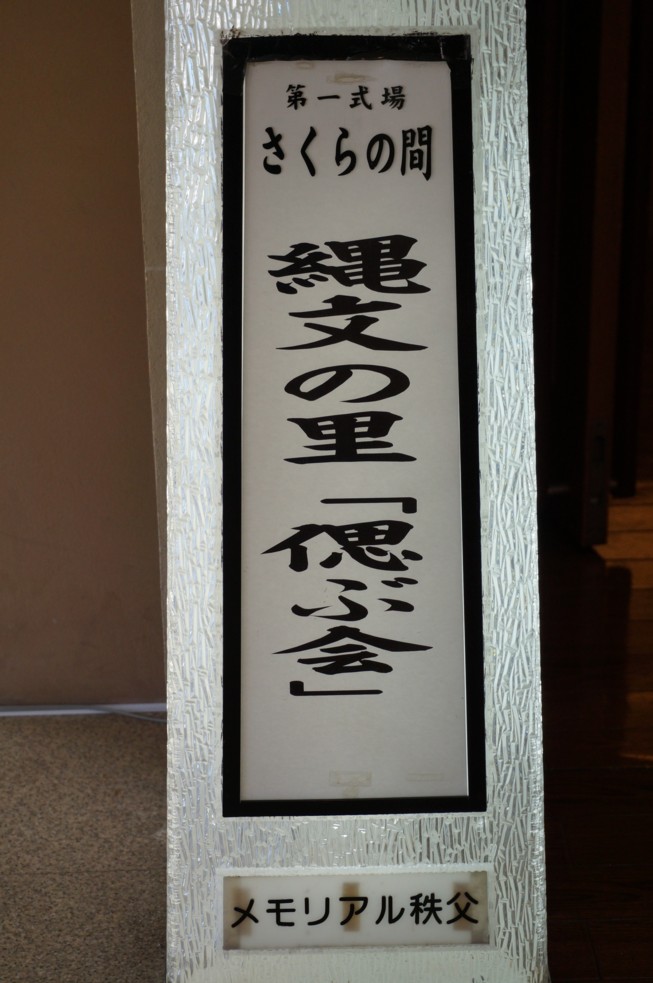 第一式場
さくらの間
縄文の里「偲ぶ会」
メモリアル秩父